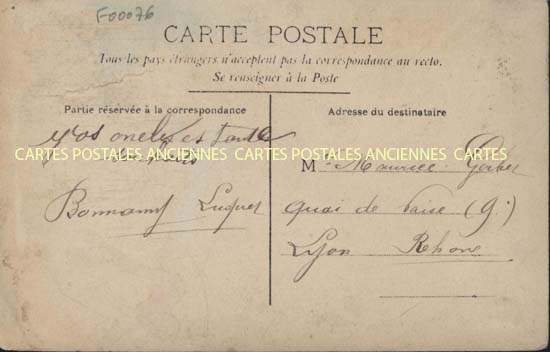 F00076
CARTE POSTALE
Tous les pays étrangers n'acceptent pas la correspondance au recto.
Se renseigner à la Poste
Partie réservée à la correspondance
Vos oncle et tante
Bonnamy Luquet
Adresse du destinataire
M Maurice Gerber
quai de Vaise (9.)
Lyon Rhône
CARTES POSTALES ANCIENNES CARTES POSTALES ANCIENNES CARTES